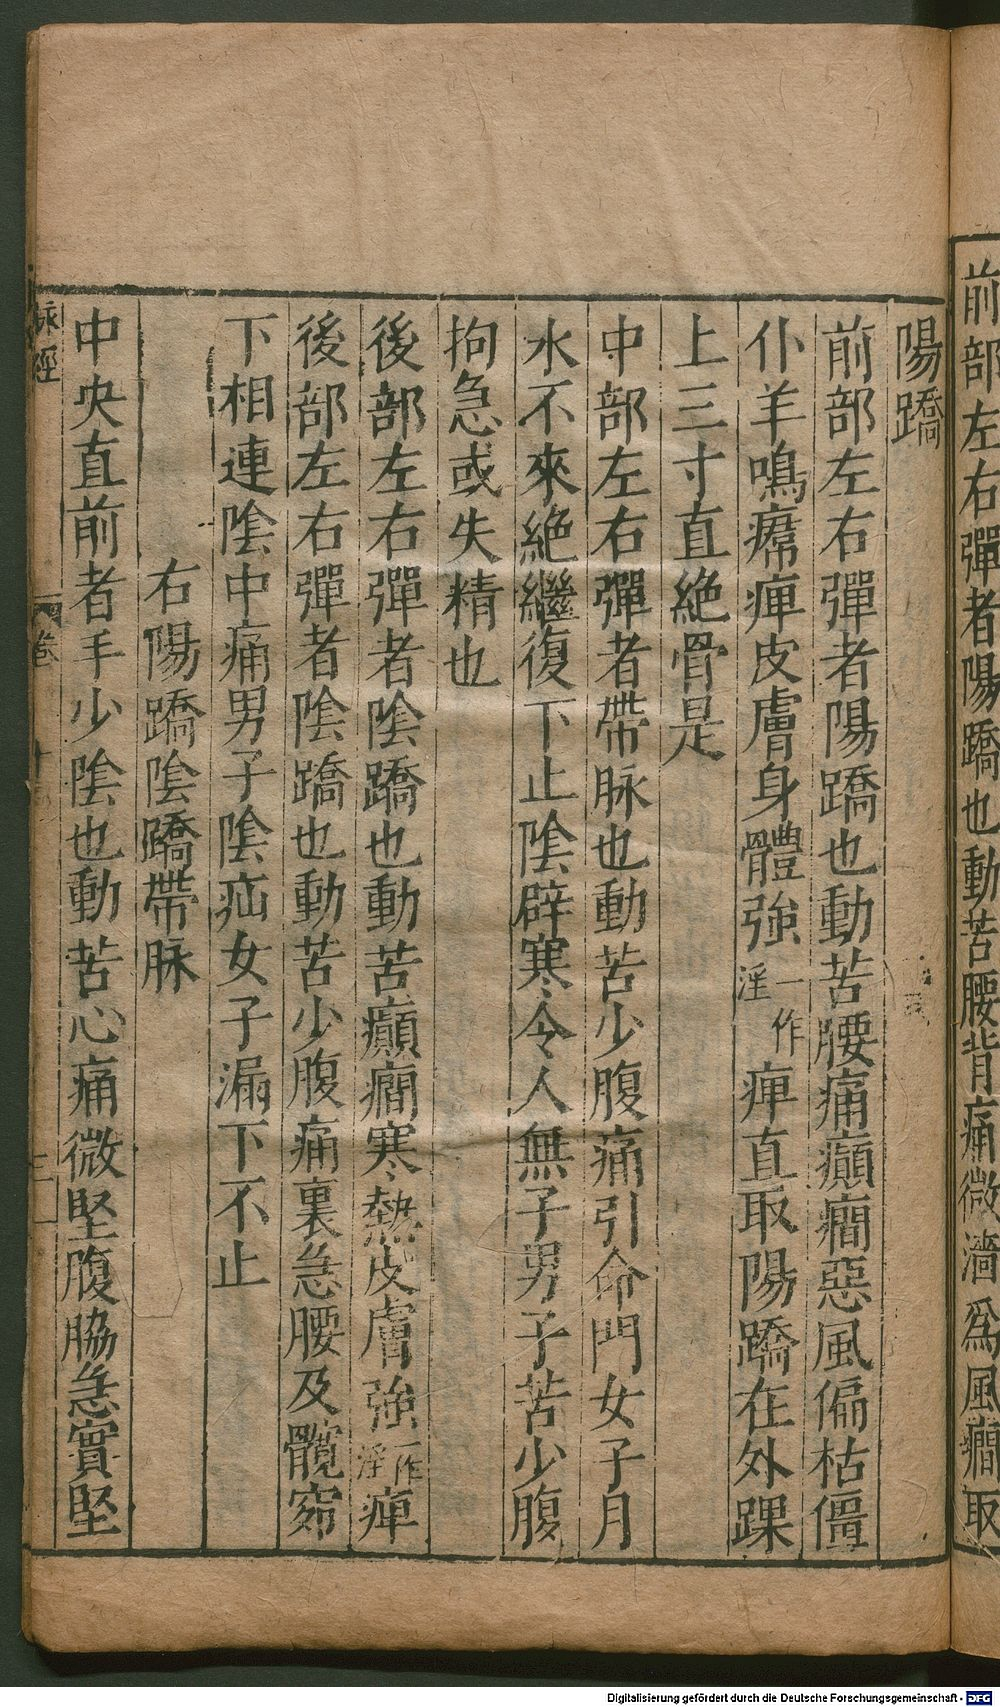 前部左右彈者陽蹻也動苦腰背痛微濇爲風癎取
陽蹻
前部左右彈者陽蹻也動苦腰痛癲癎惡風偏枯僵
仆羊鳴𤸷痺皮膚身體強一作淫痺直取陽蹻在外踝
上三寸直絶骨是
中部左右彈者帶脉也動苦少腹痛引命門女子月
水不來絶繼復下止陰辟寒令人無子男子苦少腹
拘急或失精也
後部左右彈者陰蹻也動苦癲癎寒熱皮膚強一作淫痺
後部左右彈者陰蹻也動苦少腹痛裏急腰及髖窌
下相連陰中痛男子陰疝女子漏下不止
右陽蹻陰蹻帶脉
中央直前者手少陰也動苦心痛微堅腹脇急實堅
脉經
卷十
二
Digitalisierung gefördert durch die Deutsche Forschungsgemeinschaft - DFG